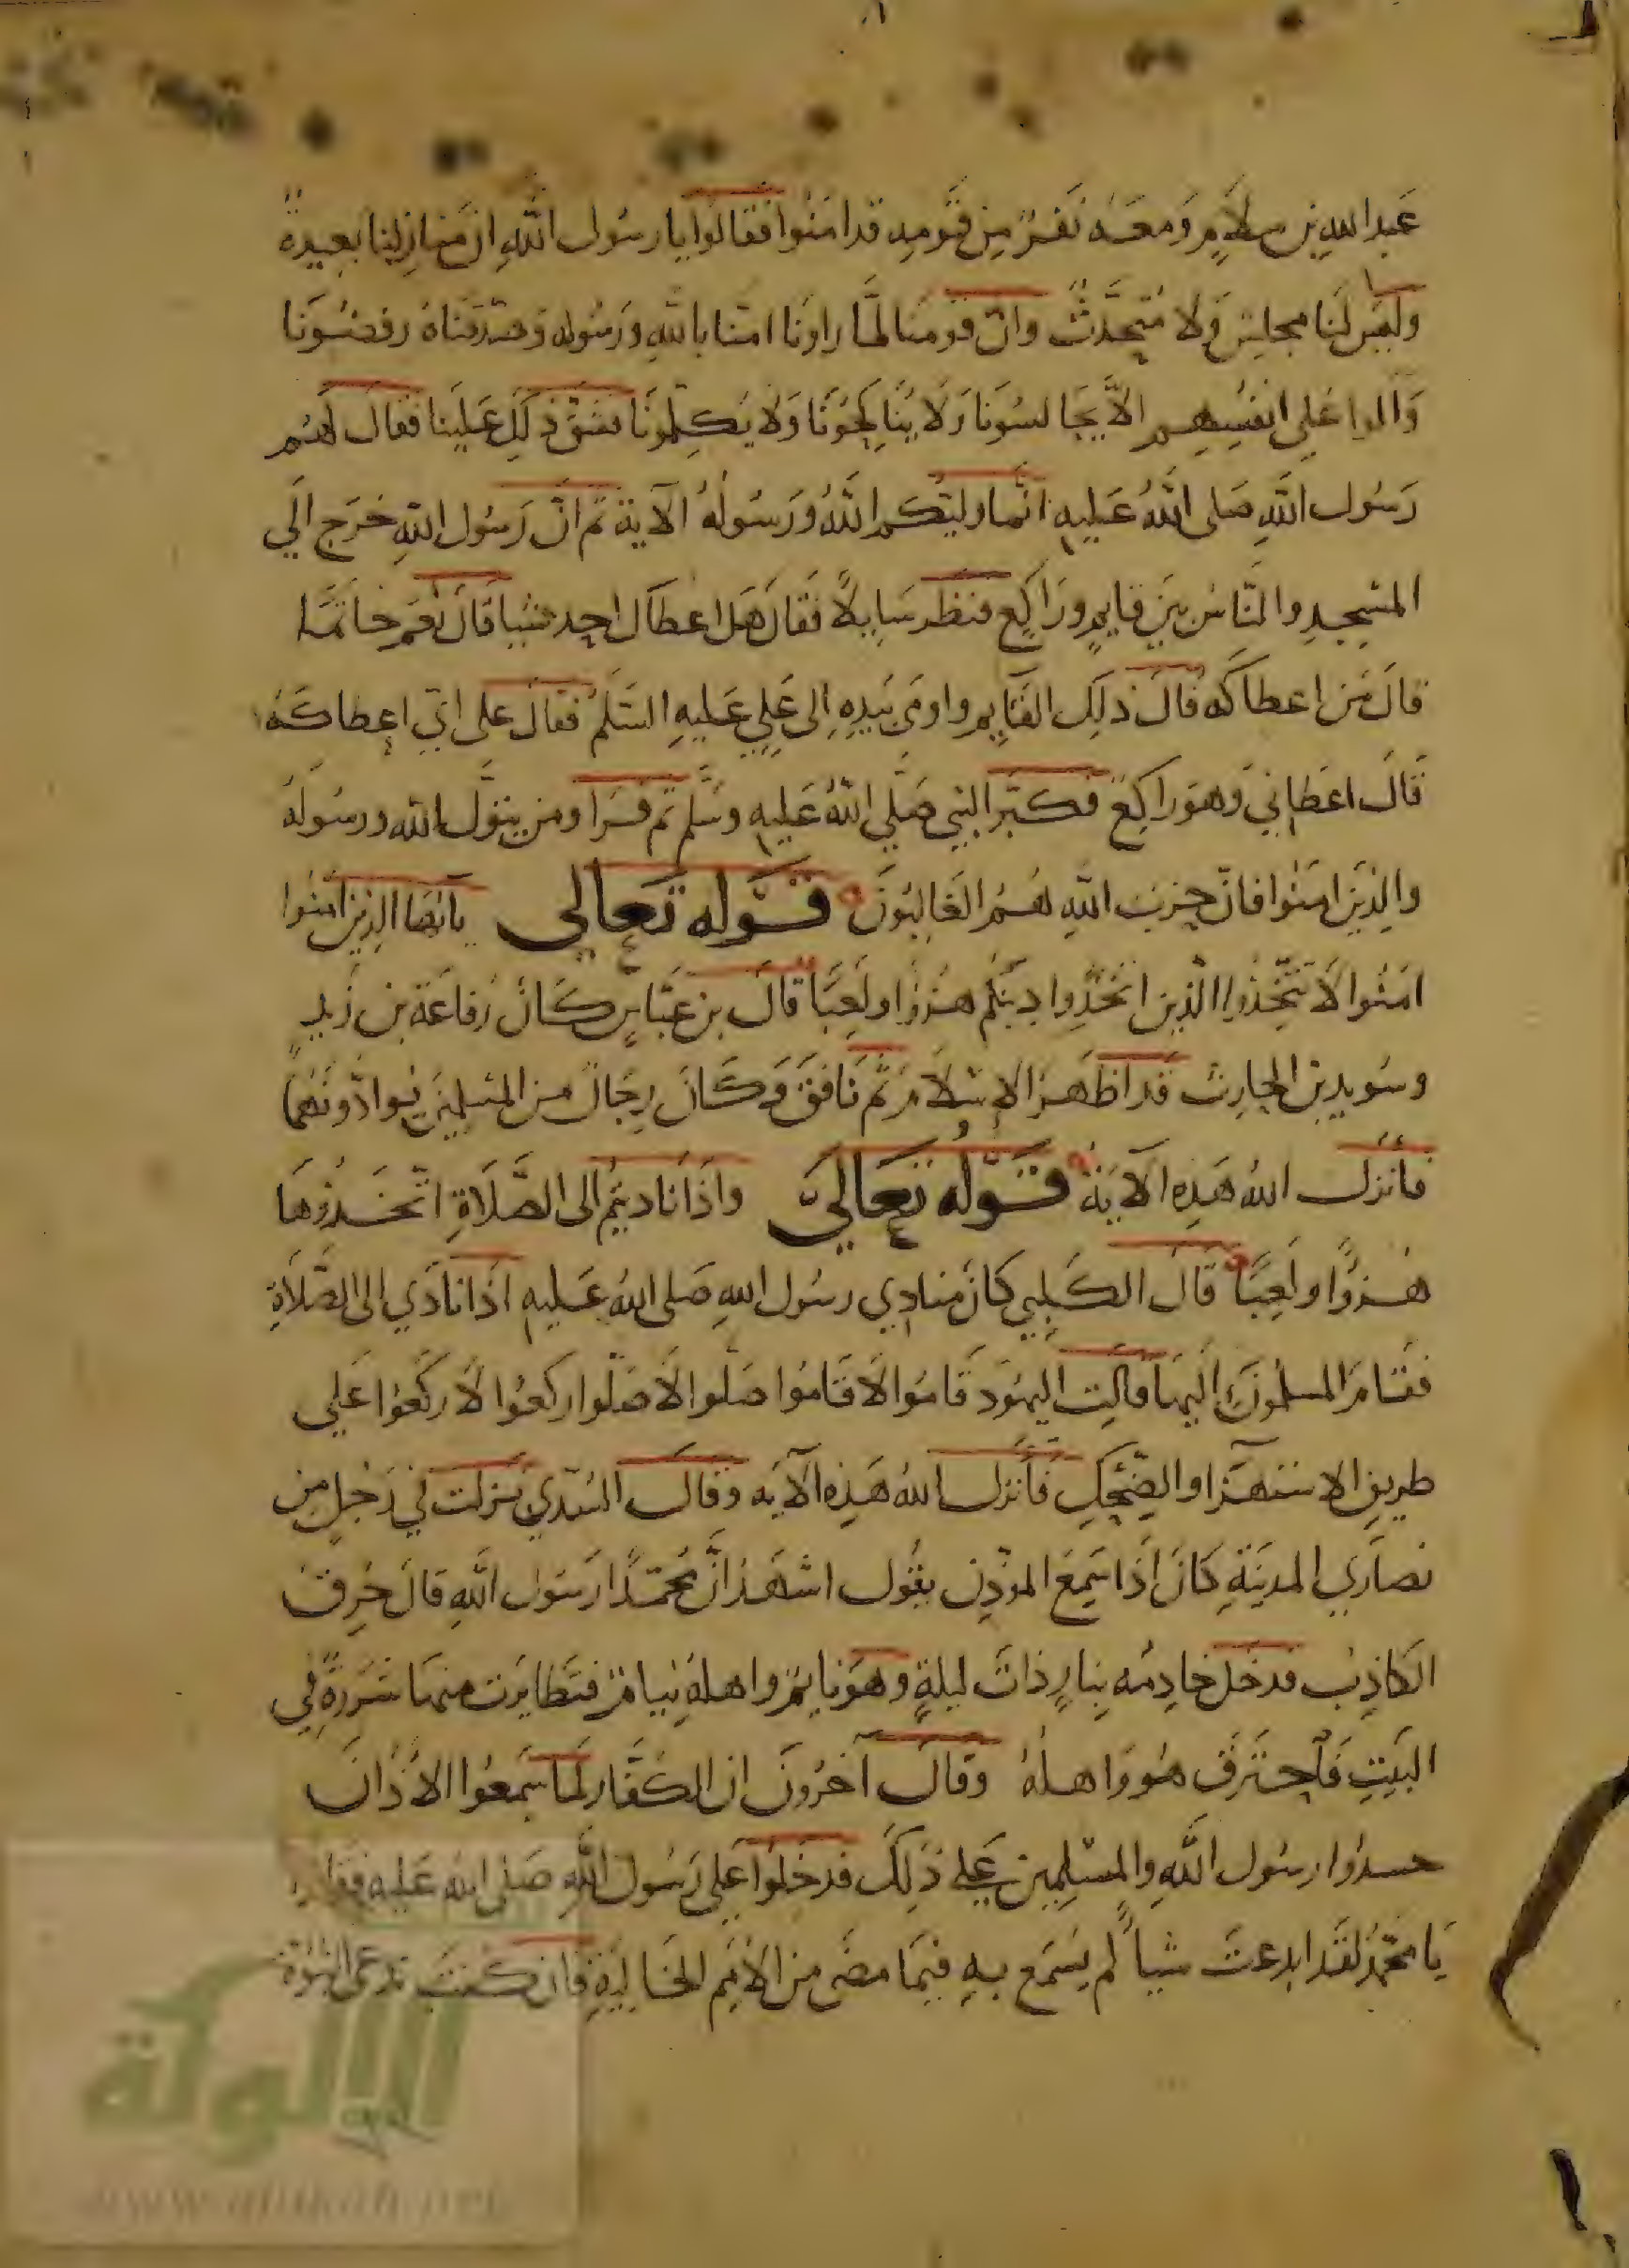 عَبد اللهِ بن سلاَمٍ وَمعَه نَفَرٌ مِن قَومِهِ قد امَنُوا فقالوا يا رسُول اللهِ ان مَنازِلنا بَعِيدةٌ
وليسَ لنَا مجلِسٌ وَلا مُتَحَدَّثٌ وان قومنَا لمَّا راونَا امنا باللهِ ورَسُوله وَصَدَّقناهُ رفضُونَا
وَالوا عَلى انفسِهِم الاَّ يُجَالسُونَا وَلا يُنَاكِحُونَا وَلا يُكلِمُونَا فشَقَّ ذلِكَ عَلَينا فقالَ لهُم
رَسُول اللهِ صَلى اللهُ عَليهِ انَّما وليكم اللهُ وَرَسُولُهُ الآية ثم انَّ رَسُول اللهِ خرَج الَي
المسْجِدِ والنَّاسُ بَينَ قايمٍ ورَاكِعٍ فنظر سَايلاً فقالَ هَل اعطاكَ احد شيا قالَ نعَم خاتمًا
قالَ مَن اعطاكَه قالَ ذلِكَ القَايم واومَي بيَدِهِ اِلى عَلِي عَليهِ السَّلم فقالَ على ايّ اعطاكَهُ
قالَ اعطانِي وَهوَ راكِعٌ فكبّر النبي صَلّي اللهُ عَليهِ وسَّلم ثم قرَا ومن يتوَّل الله ورسُوله
والذِينَ امَنُوا فانّ حِزبَ اللهِ هُمُ الغَالِبُونَ قَوله تَعالي يا ايها الذِين امنُوا
امَنُوا لاَ تَتَّخِذُوا الذِين اتخَذُوا دِينكُم هُزوًا ولَعِبًا قالَ بن عبَّاسٍ كَانَ رُفاعَة بن زَيدٍ
وسُويد بن الحارِث قد اظهَرَ الاِسْلاَم ثم نَافقَ وَكَانَ رِجَالٌ من المُسْلِمينَ يُوادُّونَهُما
فانزلَ اللهُ هَذِه الآيَة قَولُه تَعَالَي واذَا نادَيتُم الى الصَّلاَةِ اتّخَذُوهَا
هُزوًا ولَعِبًا قالَ الكَلبِي كانَ مُنادِي رسُول اللهِ صَلى اللهُ عَليهِ اذَا نادَي الى الصَّلاَةِ
فقامَ المسلمُونَ اليهَا قالتِ اليهُود قَامُوا لاَ قَامُوا صَلّوا لاَ صَلّوا ركعُوا لاَ ركَعُوا عَلي
طريقِ الاستهزا والضحِكِ فأنزلَ اللهُ هَذِه الآيه وقالَ السُدّي نزلت في رَجُلٍ من
نصارَي المدينَةِ كانَ اذَا سَمِعَ الموذِن يقُول اشهَد انَّ محمّدًا رَسُول اللهِ قالَ حُرِقَ
الكَاذِبُ فدخل خادِمُه بِنارٍ ذاتَ ليلةٍ وهوَ نايم واهلهُ نِيام فتَطايَرت منهَا شَرَرةٌ في
البَيتِ فَاحترَق هُو وَاهلهُ وَقالَ آخرُونَ ان الكفَّار لمَا سَمعُوا الاذَانَ
حسدُوا رسُول اللهِ والمسْلِمِين عَلى ذلِكَ فدخلوا عَلى رَسُول اللهِ صَلى الله عَليه فقالوا
يَا محمّد لقَد ابدعتَ شيأً لم يُسْمع بهِ فيمَا مضَى من الاُمَم الخَاليَةِ فان كنتَ تدعي النبوة
الألوكة
www.alukah.net